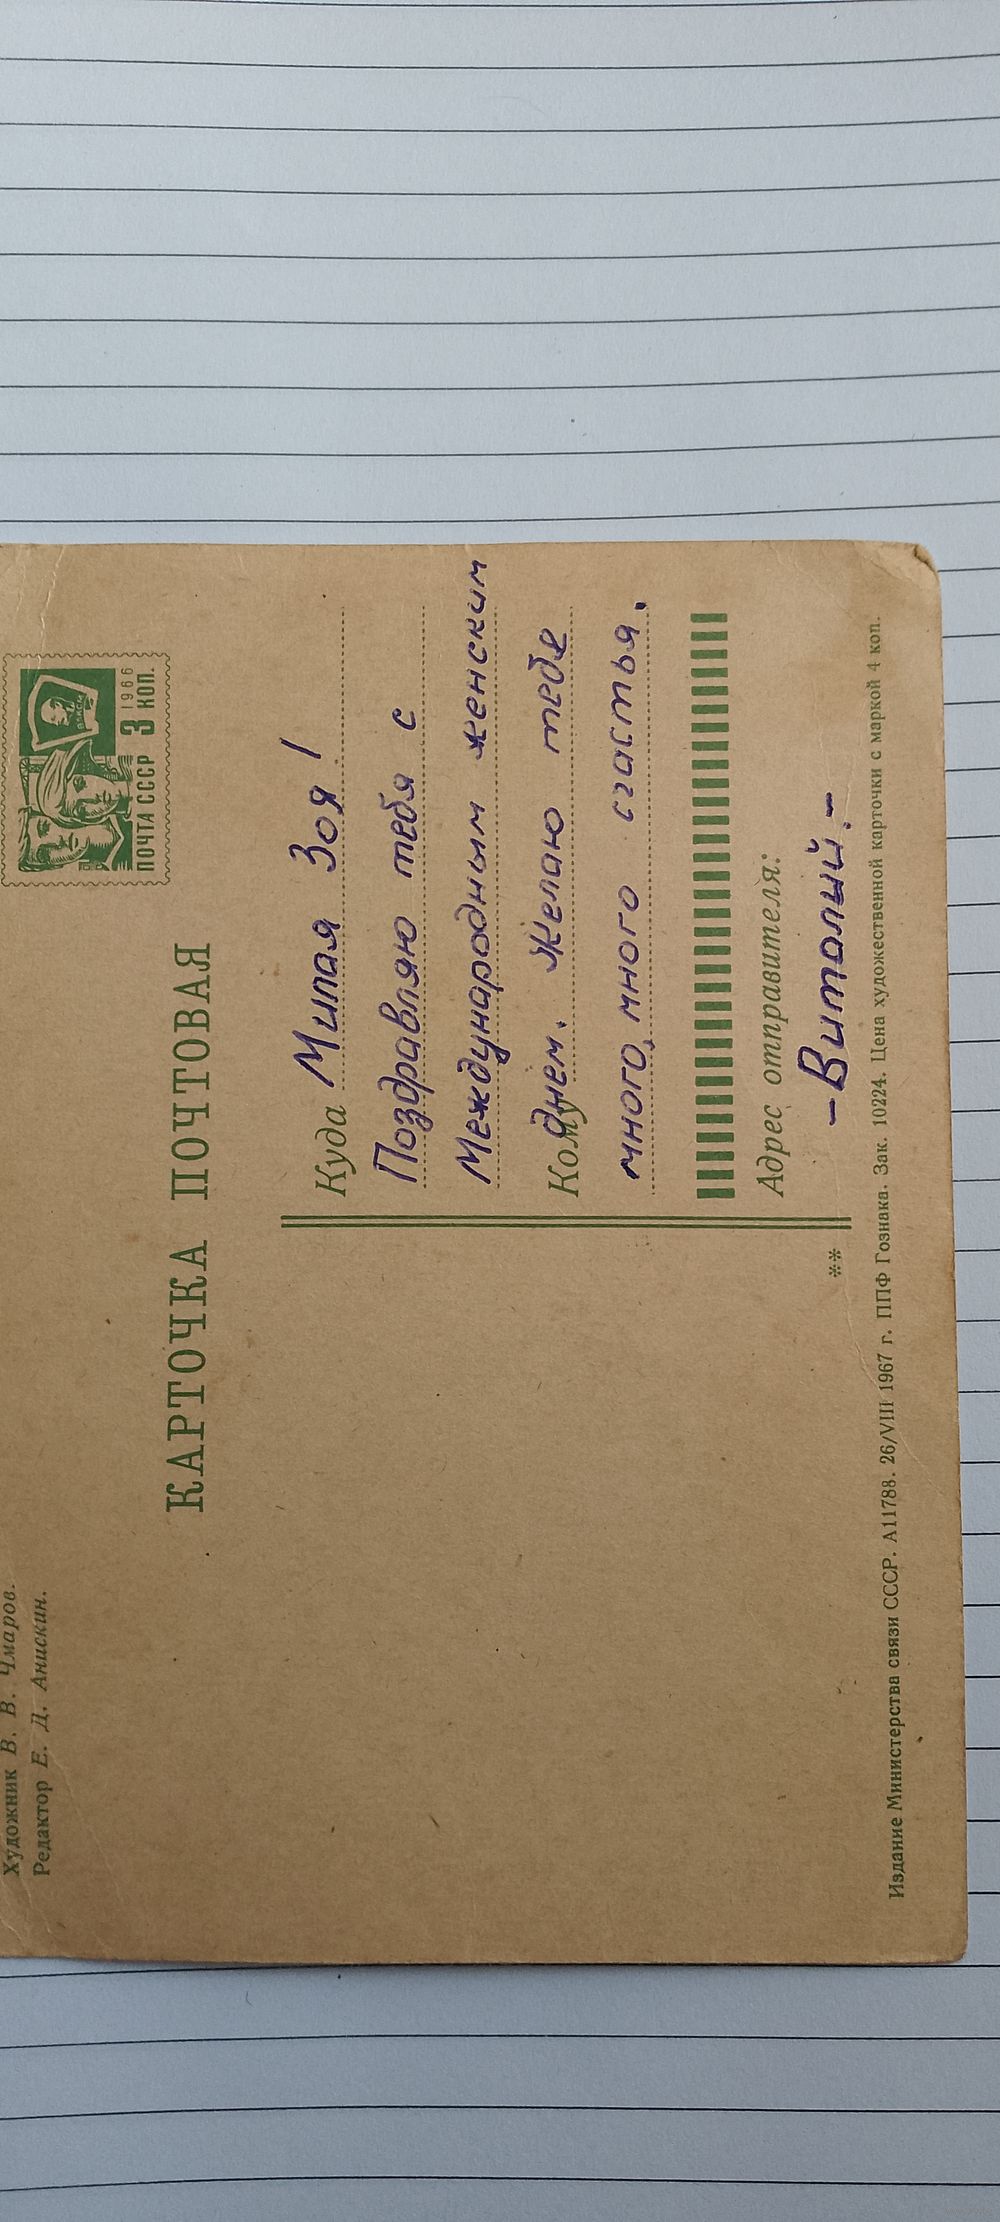 Художник В. В. Чмаров.
Редактор Е. Д. Анискин.
ВЛКСМ
1966
ПОЧТА СССР 3 КОП.
КАРТОЧКА ПОЧТОВАЯ
Куда Милая Зоя!
Поздравляю тебя с
Международным женским
Кому днем. Желаю тебе
много, много счастья.
Адрес отправителя:
-Виталий.-
**
Издание Министерства связи СССР. А11788. 26/VIII 1967 г. ППФ Гознака. Зак. 10224. Цена художественной карточки с маркой 4 коп.